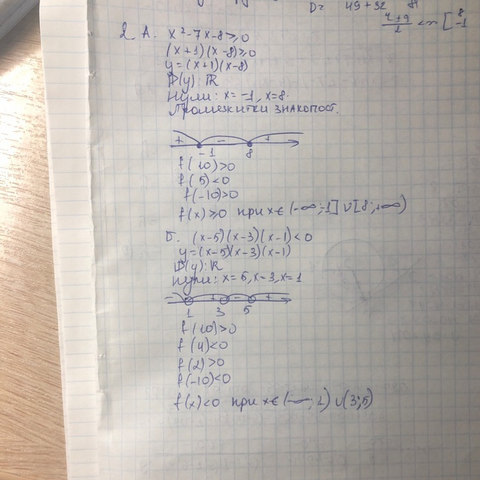 D= 49+32 81
7±9/2 <=> [ 8 -1
2. А. x²-7x-8≥0
(x+1)(x-8)≥0
y=(x+1)(x-8)
D(y): ℝ
Нули: x=-1, x=8.
Промежутки знакопост.
+ - +
-1 8
f(10)>0
f(5)<0
f(-10)>0
f(x)≥0 при x∈(-∞;-1]∪[8;+∞)
Б. (x-5)(x-3)(x-1)<0
y=(x-5)(x-3)(x-1)
D(y): ℝ
Нули: x=5, x=3, x=1
- + - +
1 3 5
f(10)>0
f(4)<0
f(2)>0
f(-10)<0
f(x)<0 при x∈(-∞;1)∪(3;5)